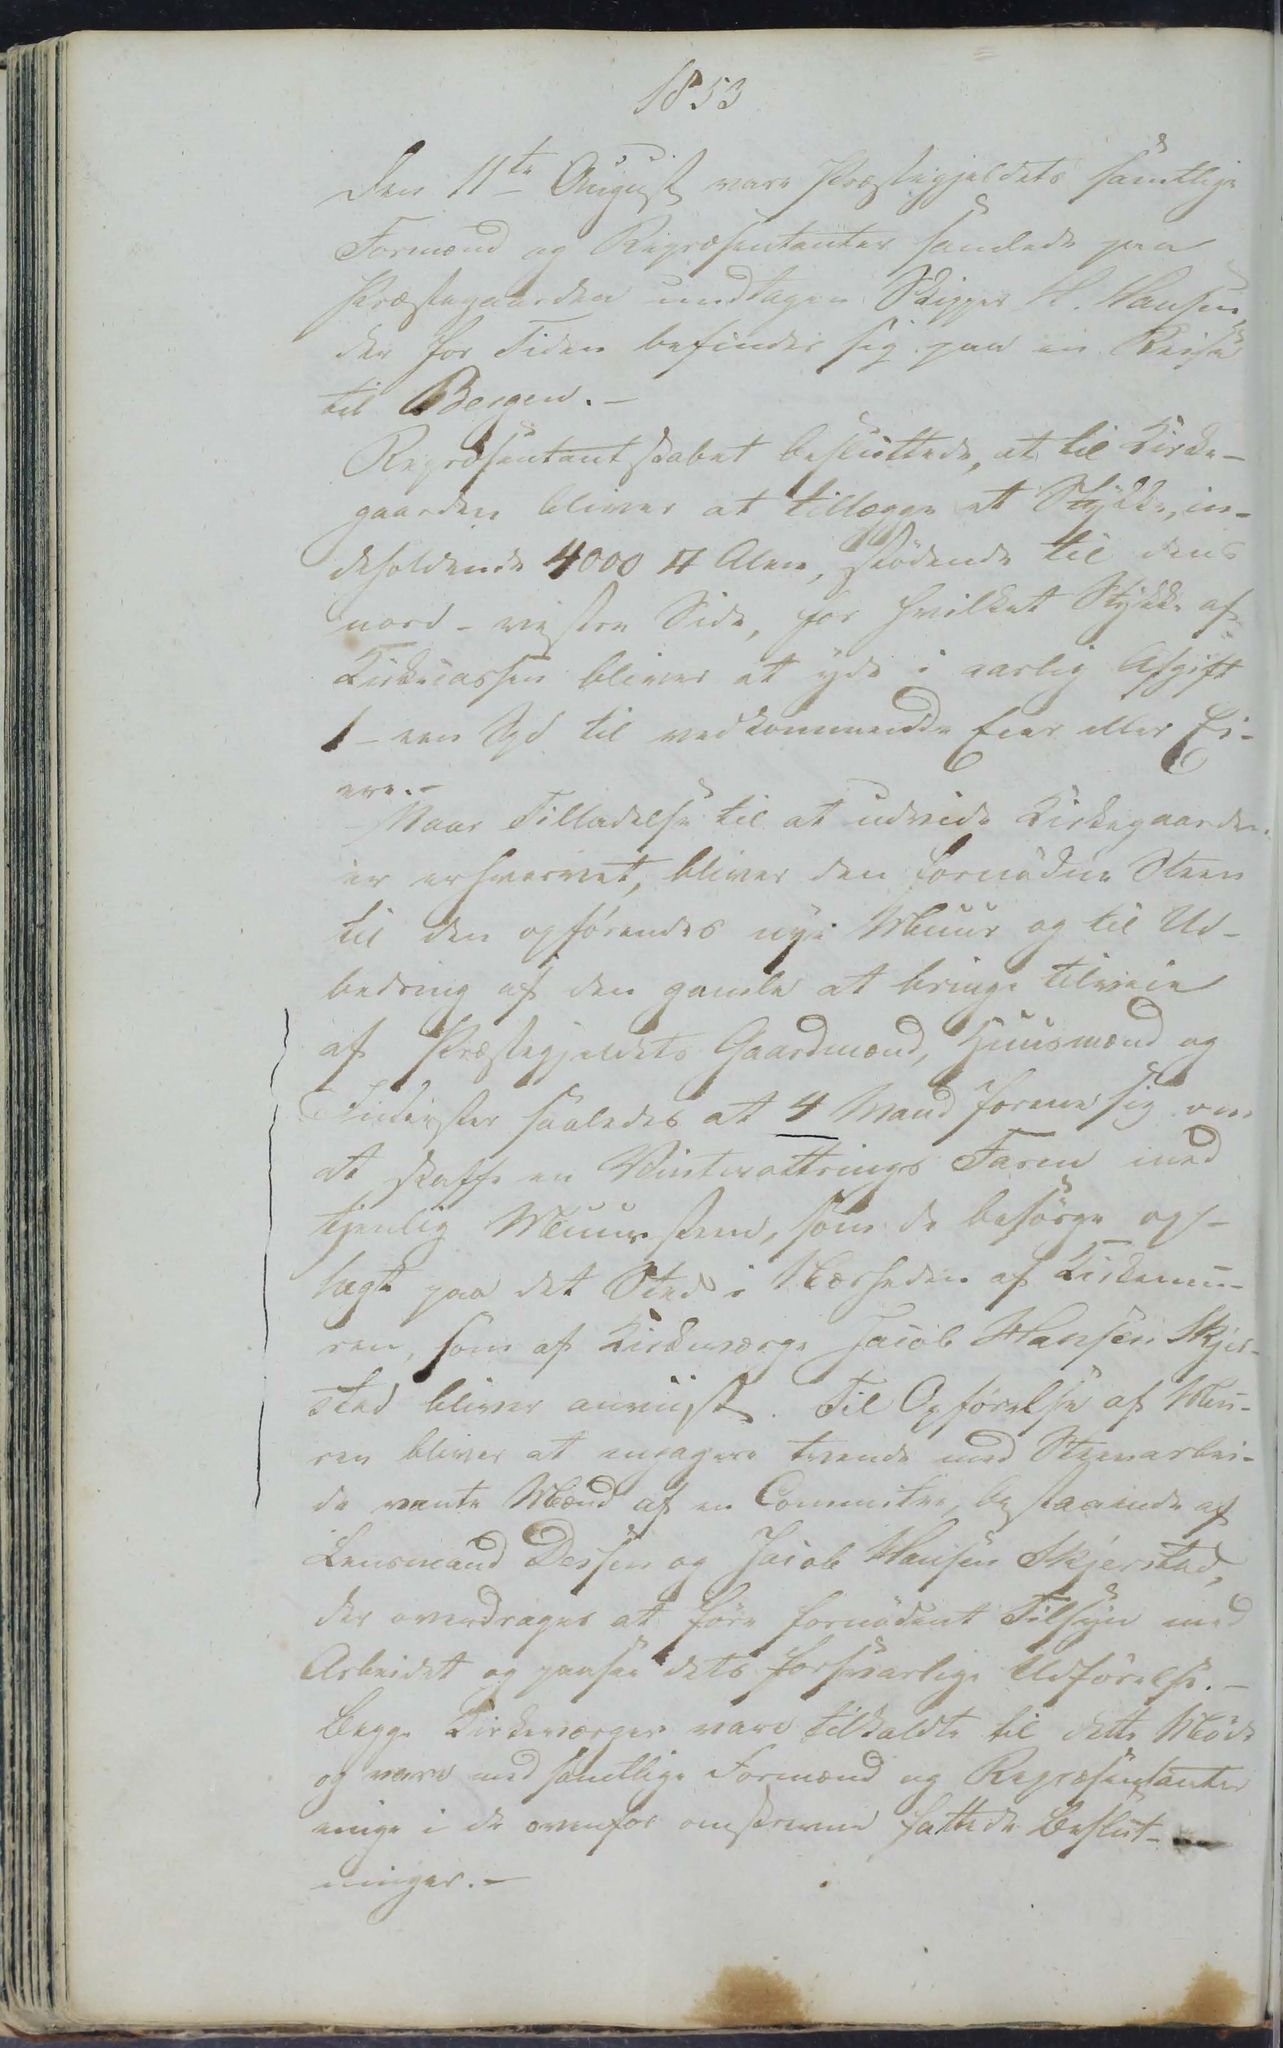 1853
Den 11te August vare Præstegjeldets samtlige
Formænd og Repræsentanter samlede paa
Præstegaarden undtagen Skipper H. Hansen,
der for Tiden befinder sig paa en Reise
til Bergen. –
Repræsentantskabet besluttede, at til Kirke-
gaarden bliver at tillægge et Stykke, in-
deholdende 4000 □ Alen, stödende til dens
nord-vestre Side, for hvilket Stykke af
Kirkecassen bliver at yde i aarlig Afgift
1 – een Spd til vedkommende Eier eller Ei-
ere. –
Naar Tilladelse til at udvide Kirkegaarden
er erhvervet, bliver den fornødne Steen
til den opførendes nye Muur og til Ud-
bedring af den gamle at bringe tilveie
af Præstegjeldets Gaardmænd, Huusmænd og
Inderster saaledes at 4 Mand forene sig om
at skaffe en Femtur med
tjenlig Muursteen, som de besörge op-
lagt paa det Sted i Nærheden af Kirkemu-
ren, som af Kirkeværge Jacob Hansen Skjer-
stad bliver anviist. Til Opförelse af Mu-
ren bliver at engagere tvende med Steenarbei-
de vante Mænd af en Committee, bestaaende af
Lensmand Dessen og Jacob Hansen Skjerstad,
der overdrages at före fornödent Tilsyn med
Arbeidet og paasee dets forsvarlige Udförelse. –
Begge Kirkeværger vare tilkaldte til dette Möde
og vare med samtlige Formænd og Repræsentanter
enige i de ovenfor omskrevne fattede Beslut-
ninger. –